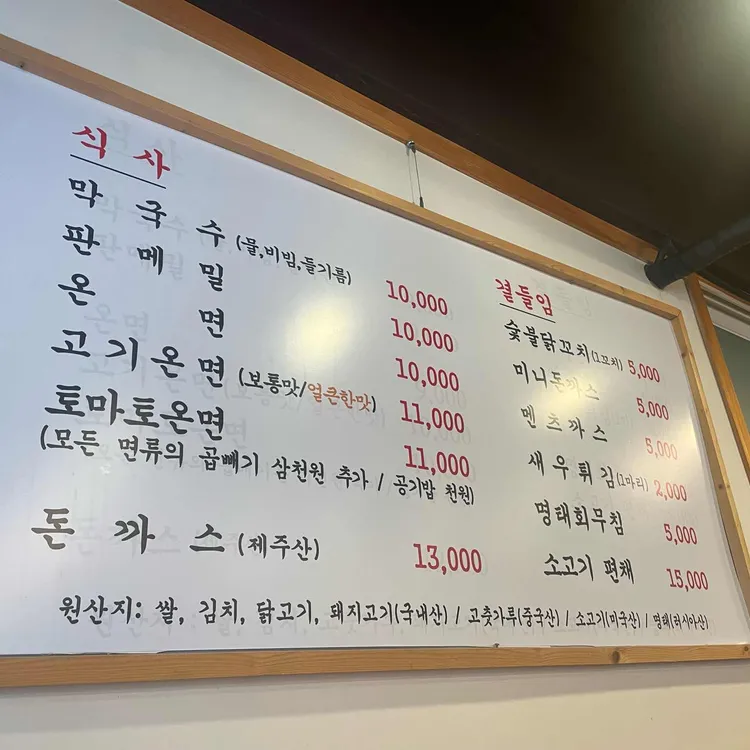 식사
막국수 (물,비빔,들기름) 10,000
판메밀 10,000
온면 10,000
고기온면 (보통맛/얼큰한맛) 11,000
토마토온면 11,000
(모든 면류의 곱빼기 삼천원 추가 / 공기밥 천원)
돈까스 (제주산) 13,000
곁들임
숯불닭꼬치(1꼬치) 5,000
미니돈까스 5,000
멘츠까스 5,000
새우튀김(1마리) 2,000
명태회무침 5,000
소고기 편채 15,000
원산지: 쌀, 김치, 닭고기, 돼지고기(국내산) / 고춧가루(중국산) / 소고기(미국산) / 명태(러시아산)